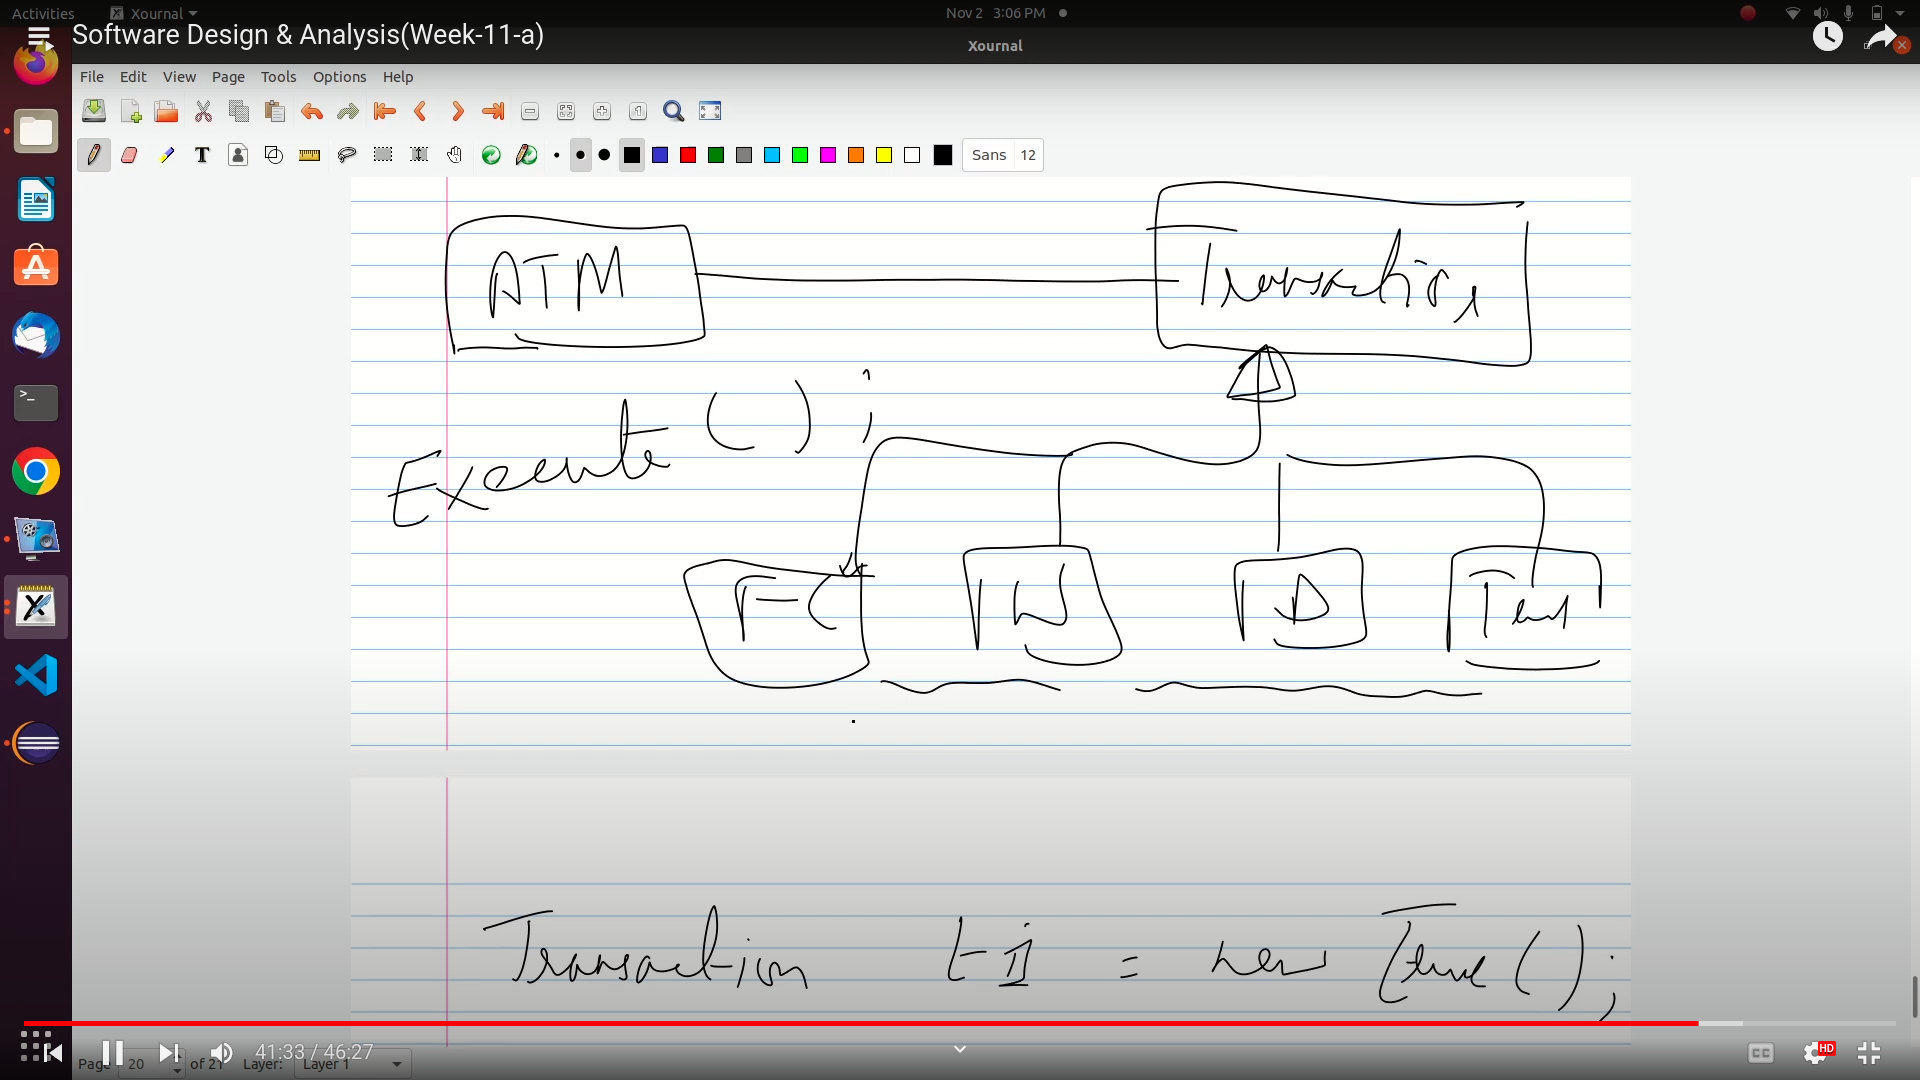 Activities Xournal Nov 2 3:06 PM
Software Design & Analysis(Week-11-a)
Xournal
File Edit View Page Tools Options Help
T Sans 12
ATM Transaction
Execute ( ) ;
FC W D
Transaction = new ( ) ;
41:33 / 46:27 CC HD
Page 20 of 21 Layer: Layer 1